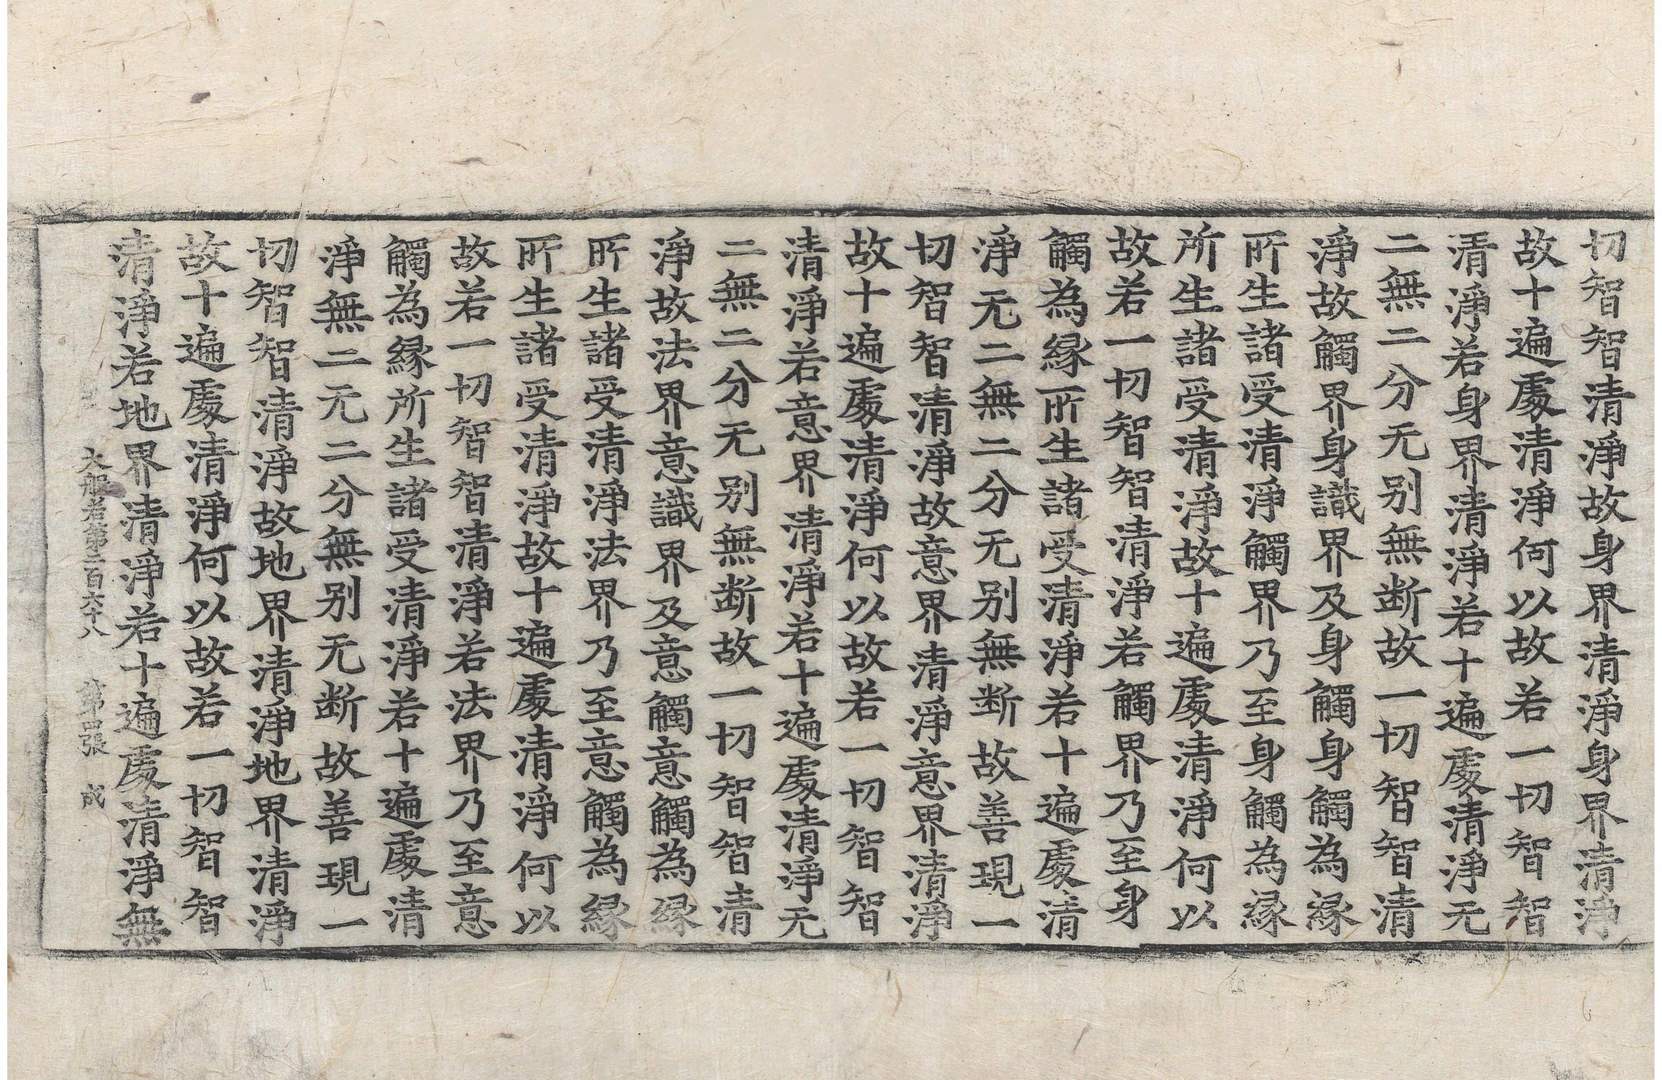 切智智清淨故身界清淨身界清淨
故十遍處清淨何以故若一切智智
清淨若身界清淨若十遍處清淨无
二無二分无别無断故一切智智清
淨故觸界身識界及身觸身觸為縁
所生諸受清淨觸界乃至身觸為縁
所生諸受清淨故十遍處清淨何以
故若一切智智清淨若觸界乃至身
觸為縁所生諸受清淨若十遍處清
淨无二無二分无别無断故善現一
切智智清淨故意界清淨意界清淨
故十遍處清淨何以故若一切智智
清淨若意界清淨若十遍處清淨无
二無二分无别無断故一切智智清
淨故法界意識界及意觸意觸為縁
所生諸受清淨法界乃至意觸為縁
所生諸受清淨故十遍處清淨何以
故若一切智智清淨若法界乃至意
觸為縁所生諸受清淨若十遍處清
淨無二无二分無别无断故善現一
切智智清淨故地界清淨地界清淨
故十遍處清淨何以故若一切智智
清淨若地界清淨若十遍處清淨無
大般若第二百六十八 第四張 成